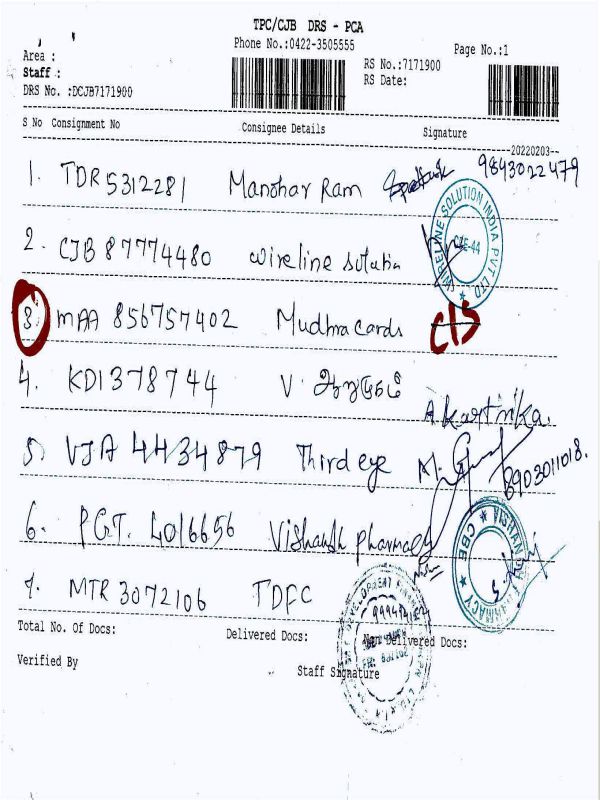 TPC/CJB DRS - PCA
Phone No.:0422-3505555
Page No.:1
Area :
Staff :
DRS No. :DCJB7171900
RS No.:7171900
RS Date:
S No Consignment No Consignee Details Signature
--20220203--
1. TDR5312281 Manohar Ram 9843022479
2. CJB 87774480 wireline solution
WIRELINE SOLUTION INDIA PVT LTD
CBE-44
3. MAA 856757402 Mudhra cards
4. KDI378744 V. ஆறுமுகம் A Karthika.
5) VJA 4434879 Third eye 8903011018.
6. PGT. 4016656 Vishansh pharmacy
CBE
7. MTR 3072106 TDFC
Total No. Of Docs: Delivered Docs: Non Delivered Docs:
Verified By
Staff Signature